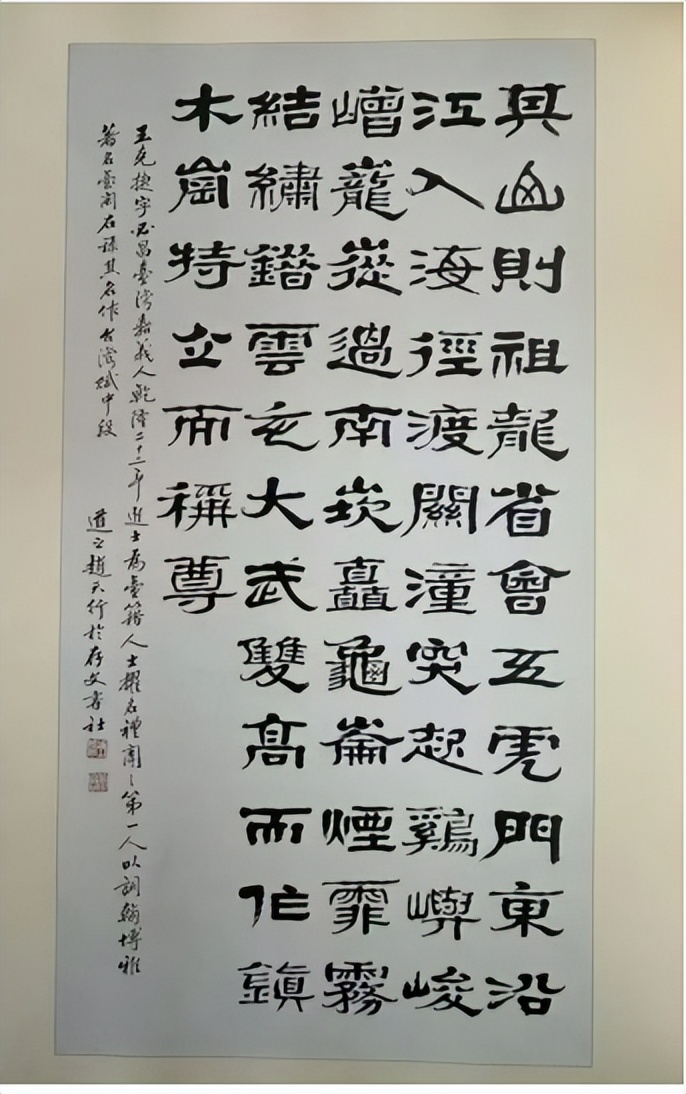 其山則祖龍省會五虎門東沿
江入海徑渡關潼突起鷄嶼峻
嶒巃嵸過南崁矗龜崙煙霏霧
結繡錯雲屯大武雙高而作鎮
木崗特立而稱尊
王克捷字必昌臺灣嘉義人乾隆二十二年進士爲臺籍人士擢名禮闈之第一人以詞翰博雅
著名臺閩右錄其名作台灣賦中段
道之趙天行於存文書社